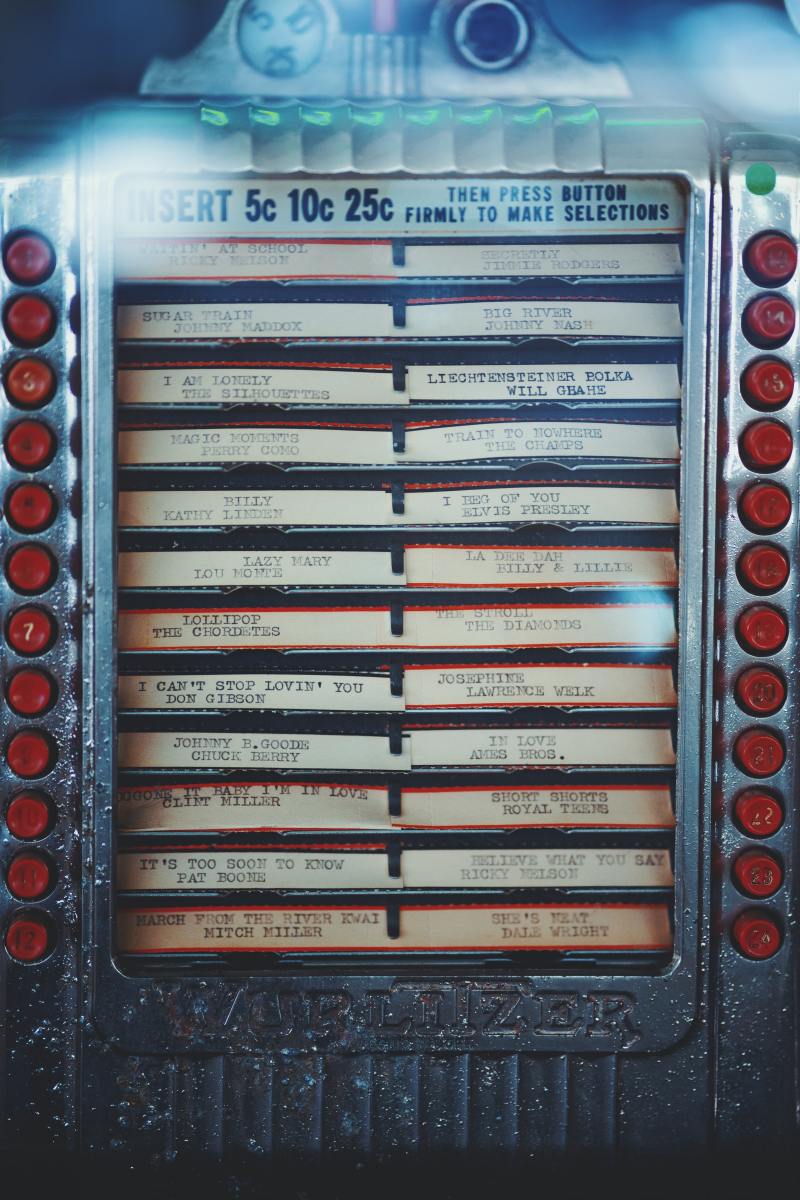 INSERT 5c 10c 25c
THEN PRESS BUTTON
FIRMLY TO MAKE SELECTIONS
WAITIN' AT SCHOOL
RICKY NELSON
SECRETLY
JIMMIE RODGERS
SUGAR TRAIN
JOHNNY MADDOX
BIG RIVER
JOHNNY NASH
I AM LONELY
THE SILHOUETTES
LIECHTENSTEINER POLKA
WILL GBAHE
MAGIC MOMENTS
PERRY COMO
TRAIN TO NOWHERE
THE CHAMPS
BILLY
KATHY LINDEN
I BEG OF YOU
ELVIS PRESLEY
LAZY MARY
LOU MONTE
LA DEE DAH
BILLY & LILLIE
LOLLIPOP
THE CHORDETES
THE STROLL
THE DIAMONDS
I CAN'T STOP LOVIN' YOU
DON GIBSON
JOSEPHINE
LAWRENCE WELK
JOHNNY B.GOODE
CHUCK BERRY
IN LOVE
AMES BROS.
OGGONE IT BABY I'M IN LOVE
CLINT MILLER
SHORT SHORTS
ROYAL TEENS
IT'S TOO SOON TO KNOW
PAT BOONE
BELIEVE WHAT YOU SAY
RICKY NELSON
MARCH FROM THE RIVER KWAI
MITCH MILLER
SHE'S NEAT
DALE WRIGHT
3
4
7
10
11
12
20
21
22
23
WURLITZER